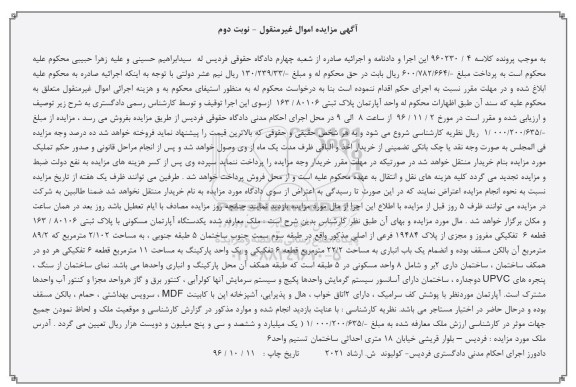 آگهی مزایده اموال غیرمنقول - نوبت دوم
به موجب پرونده کلاسه ۴ / ۹۶۰۲۳۰ این اجرا و دادنامه و اجرائیه صادره از شعبه چهارم دادگاه حقوقی فردیس له سیدابراهیم حسینی و علیه زهرا حبیبی محکوم علیه
محکوم است به پرداخت مبلغ ۶۰۰/۷۸۲/۶۶۴/- ریال بابت در حق محکوم له و مبلغ ۱۳۰/۲۳۹/۳۳/- ریال نیم عشر دولتی با توجه به اینکه اجرائیه صادره به محکوم علیه
ابلاغ شده و در مهلت مقرر نسبت به اجرای حکم اقدام ننموده است بنا به درخواست محکوم له به منظور استیفای محکوم به و هزینه اجرائی اموال غیرمنقول متعلق به
محکوم علیه که سند آن طبق اظهارات محکوم له واحد آپارتمان پلاک ثبتی ۸۰۱۰۶ / ۱۶۳ ازسوی این اجرا توقیف و توسط کارشناس رسمی دادگستری به شرح زیر توصیف
و ارزیابی شده و مقرر است در مورخ ۲ / ۱۱ / ۹۶ از ساعت ۸ الی ۹ در محل اجرای احکام مدنی دادگاه حقوقی فردیس از طریق مزایده بفروش می رسد ، مزایده از مبلغ
۱/۰۰۰/۲۰۰/۶۳۵/- ریال نظریه کارشناسی شروع می شود و به هر شخص حقیقی و حقوقی که بالاترین قیمت را پیشنهاد نماید فروخته خواهد شد ده درصد وجه مزایده
فی المجلس به صورت وجه نقد یا چک بانکی تضمینی از خریدار اخذ و الباقی ظرف مدت یک ماه از وی وصول خواهد شد و پس از انجام مراحل قانونی و صدور حکم تملیک
مورد مزایده بنام خریدار منتقل خواهد شد در صورتیکه در مهلت مقرر خریدار وجه مزایده را پرداخت ننماید سپرده وی پس از کسر هزینه های مزایده به نفع دولت ضبط
و مزایده تجدید می گردد کلیه هزینه های نقل و انتقال به عهده محکوم علیه است و از محل فروش پرداخت خواهد شد . طرفین می توانند ظرف یک هفته از تاریخ مزایده
نسبت به نحوه انجام مزایده اعتراض نمایند که در این صورت تا رسیدگی به اعتراض از سوی دادگاه مورد مزایده به نام خریدار منتقل نخواهد شد ضمنا طالبین به شرکت
در مزایده می توانند ظرف ۵ روز قبل از مزایده با اطلاع این اجرا از مال مورد مزایده بازدید نمایند چنانچه روز مزایده مصادف با ایام تعطیل باشد روز بعد در همان ساعت
و مکان برگزار خواهد شد . مال مورد مزایده و بهای آن طبق نظر کارشناس بدین شرح است ، ملک معارفه شده یکدستگاه آپارتمان مسکونی با پلاک ثبتی ۸۰۱۰۶ / ۱۶۳
قطعه ۶ تفکیکی مفروز و مجزی از پلاک ۱۹۴۸۴ فرعی از اصلی مذکور واقع در طبقه سوم سمت جنوب ساختمان ۵ طبقه جنوبی ، به مساحت ۲/۱۰۲ مترمربع که ۸۹/۲
مترمربع آن بالکن مسقف بوده و انضمام یک باب انباری به مساحت ۲۲/۲ مترمربع قطعه ۶ تفکیکی و یک واحد پارکینگ به مساحت ۱۱ مترمربع قطعه ۶ تفکیکی هر دو در
همکف ساختمان ، ساختمان داری ۲بر و شامل ۸ واحد مسکونی در ۵ طبقه است که طبقه همکف آن محل پارکینگ و انباری واحدها می باشد. نمای ساختمان از سنگ ،
پنجره های UPVC دوجداره ، ساختمان دارای آسانسور سیستم گرمایش واحدها پکیج و سیستم سرمایش آنها کولرآبی ، کنتور برق و گاز هرواحد مجزا و کنتور آب واحدها
مشترک است. آپارتمان موردنظر با پوشش کف سرامیک ، دارای ۲اتاق خواب ، هال و پذیرایی، آشپزخانه اپن با کابینت MDF ، سرویس بهداشتی ، حمام ، بالکن مسقف
بوده و درحال حاضر در اختیار مستاجر می باشد. نظریه کارشناسی : با عنایت بازدید انجام شده و موارد مذکور در گزارش کارشناسی و موقعیت ملک و لحاظ نمودن جمیع
جهات موثر در کارشناسی ارزش ملک معارفه شده به مبلغ ۱/۰۰۰/۲۰۰/۶۳۵/- ( یک میلیارد و ششصد و سی و پنج میلیون و دویست هزار ریال تعیین می گردد . آدرس
ملک مورد مزایده : فردیس – بلوار قریشی خیابان ۱۸ متری احداثی ساختمان تسنیم واحد۶
دادورز اجرای احکام مدنی دادگستری فردیس- کولیوند ش. ارشاد ۲۰۲۱ تاریخ چاپ : ۱۱ / ۱۰ / ۹۶